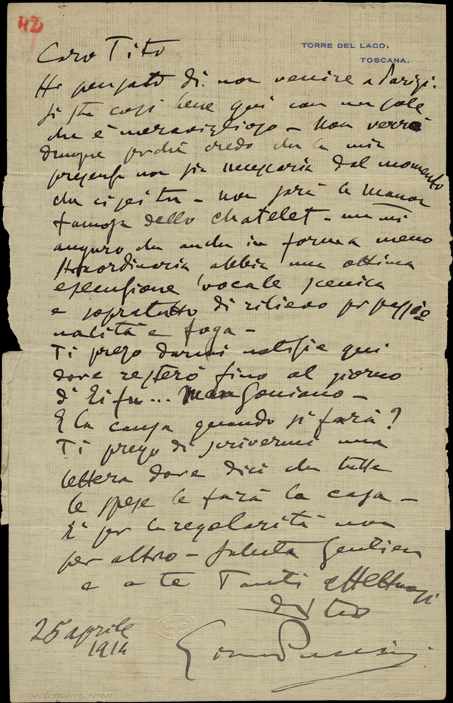 42
TORRE DEL LAGO,
TOSCANA.
Caro Tito
Ho pensato di non venire a Parigi.
Si sta così bene qui con un sole
che è meraviglioso – non verrò
dunque perchè credo che la mia
presenza non sia necessaria dal momento
che ci sei tu – non sarà la Manon
famosa dello Chatelet – ma mi
auguro che anche in forma meno
straordinaria abbia una ottima
esecuzione vocale scenica
e sopratutto di rilievo per passio
nalità e foga –
Ti prego darmi notizie qui
dove resterò fino al giorno
di
E la causa quando si farà?
Ti prego di scrivermi una
lettera dove dici che tutte
le spese le farà la casa –
È per la regolarità non
per altro – Saluta
e a te Tanti affettuosi
dal tuo
Giacomo Puccini
25 aprile
1914